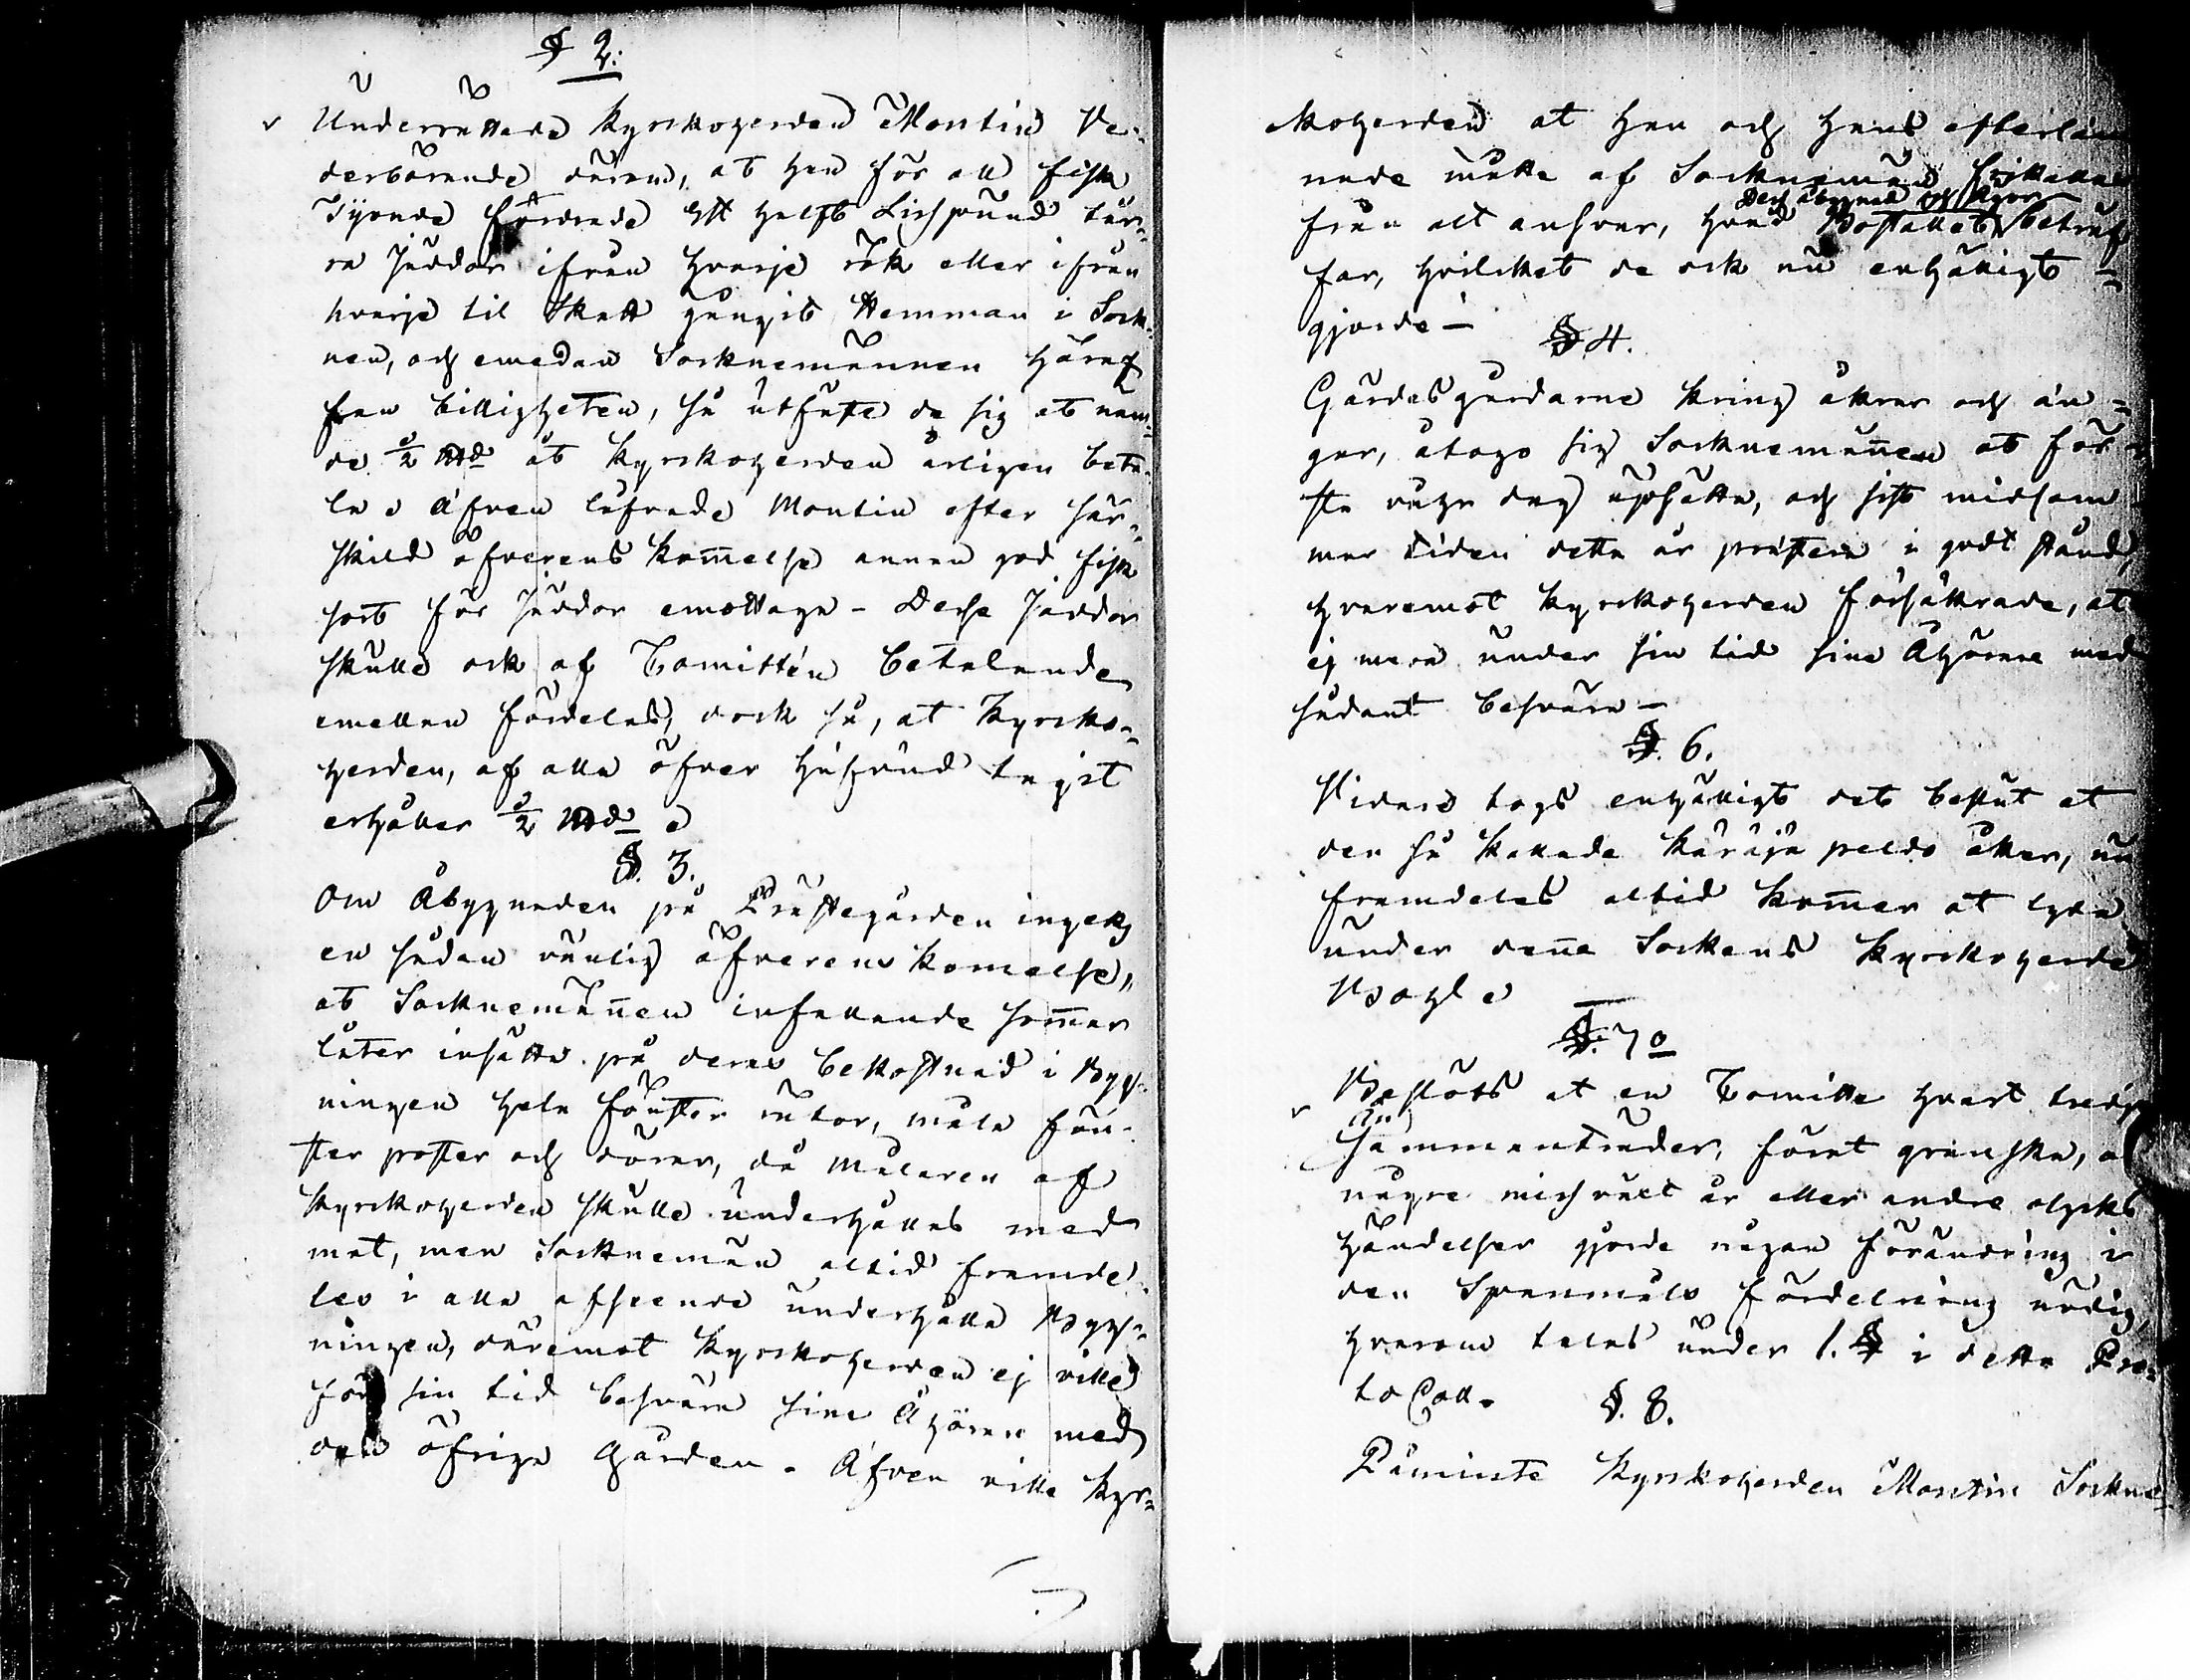 § 2.
Underrättade Kyrkoherden Montin Ve-
derbörande derom, at han för all fisk
Tijonde fordrade Ett halft Lispund tör-
ra Jäddor ifrån hvarje rök eller ifrån
hvarje til Skatt gångit Hemman i Sock-
nen, och emedan Socknemännen häruti
fan billigheten, så utfäste de sig at näm-
de 1/2 Ltd åt Kyrckoherden årligen beta-
la. Äfven lofvade Montin efter sär-
skild öfverens kommelse annan god fisk
sort för Jäddor emottaga - Desse Jäddor
skulle ock af Comitten betalande
emellan fördelas, dock så, at Kyrcko-
herden, af alla öfver hufvud tagit
erhåller 1/2 Ltd
§. 3.
Om Åbygnaden på Prästegården ingeks
en sådan vänlig öfverens komelse,
at Socknemännen infallande Sommar
låter insätta på deras bekostnad i Byg-
ningen hela fönster rutor, måla fön-
ster poster och dörar, då målaren af
Kyrckoherden skulle underhållas med
mat, men Socknemän altid framde-
les i alla afseende underhålla Bygg-
ningen, däremot Kyrckoherden ej ville
för sin tid besvära sine Åhörare med
den öfriga Gården. Äfven ville Kyr-
ckoherden at han och hans efterläm
nade måtte af Socknemän frikallas
Dess åbygnad och
från alt ansvar, hvad Bostället beträf
far, hvilcket de ock nu enhälligt -
gjorde -
§. 4.
Gärdesgårdarne kring åkrar och än-
gar, åtogo sig Socknemännen at för-
sta väga dag upsätta, och sist midsom-
mar tiden detta år prästera i godt stånd,
hvaremot Kyrckoherden försäkrade, at
ej mera under sin tid sina Åhörare med
sådant besvära -
§. 6.
Vidare togs enhälligt det beslut at
den så kallade Käräjä peldo åker, nu
framdeles altid kommer at lyda
under denna Sockens Kyrckoherde
Bohl
§. 7o
Beslöts at en Comitte hvart tredje
År
sammanträder, föret granska, o
någre missväxt år eller andre olycks
händelser gjorde någon förändring i
den Spanmåls fördelning nödig,
hvarom talas under 1. § i detta Pro-
tocoll.
§. 8.
Påminte Kyrckoherden Montin Sockne-